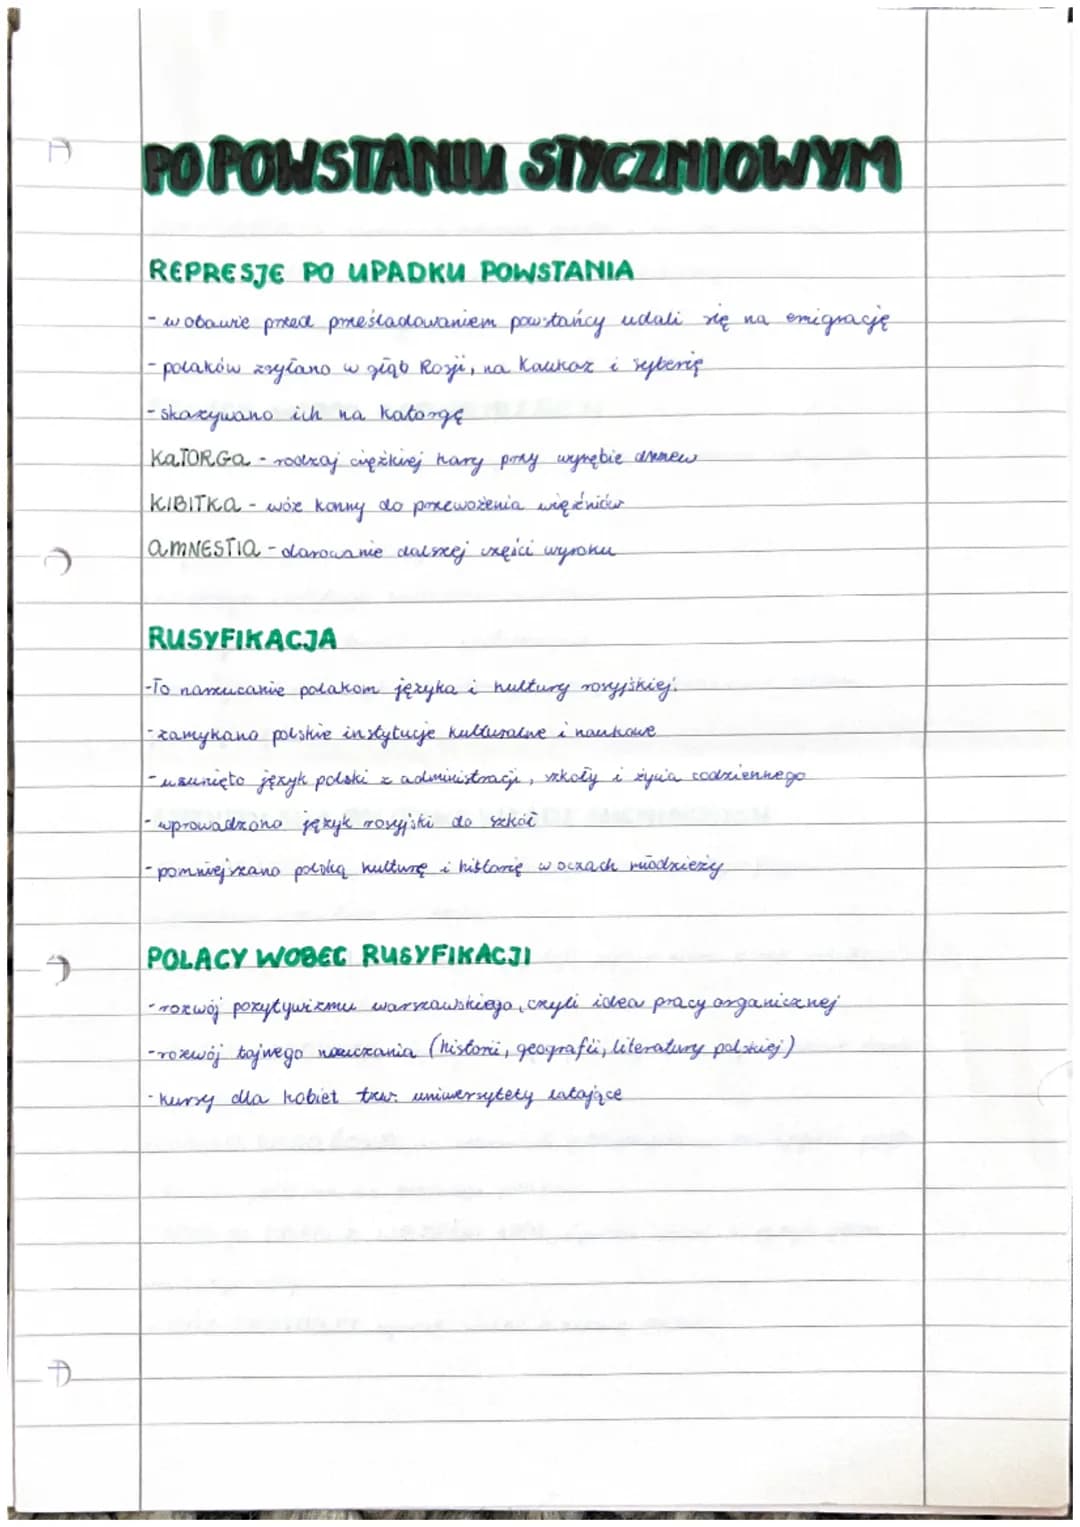 PO POWSTANIU STYCZNIOWYM
REPRESJE PO UPADKU POWSTANIA
- w obawie przed prześladowaniem powstańcy udali się na emigrację
- polaków zsyłano w głąb Rosji, na Kaukaz i syberię
- skazywano ich na katorgę
KATORGA - rodzaj ciężkiej kary przy wyrębie drzew
KIBITKA - wóz konny do przewożenia więźniów
AMNESTIA - darowanie dalszej części wyroku
RUSYFIKACJA
- To narzucanie polakom języka i kultury rosyjskiej.
- zamykano polskie instytucje kulturalne i naukowe
- usunięto język polski z administracji, szkoły i życia codziennego
- wprowadzono język rosyjski do szkół
- pomniejszano polską kulturę i historię w oczach młodzieży
POLACY WOBEC RUSYFIKACJI
- rozwój pozytywizmu warszawskiego, czyli idea pracy organicznej
- rozwój tajnego nauczania (historii, geografii, literatury polskiej)
- kursy dla kobiet tzw. uniwersytety latające